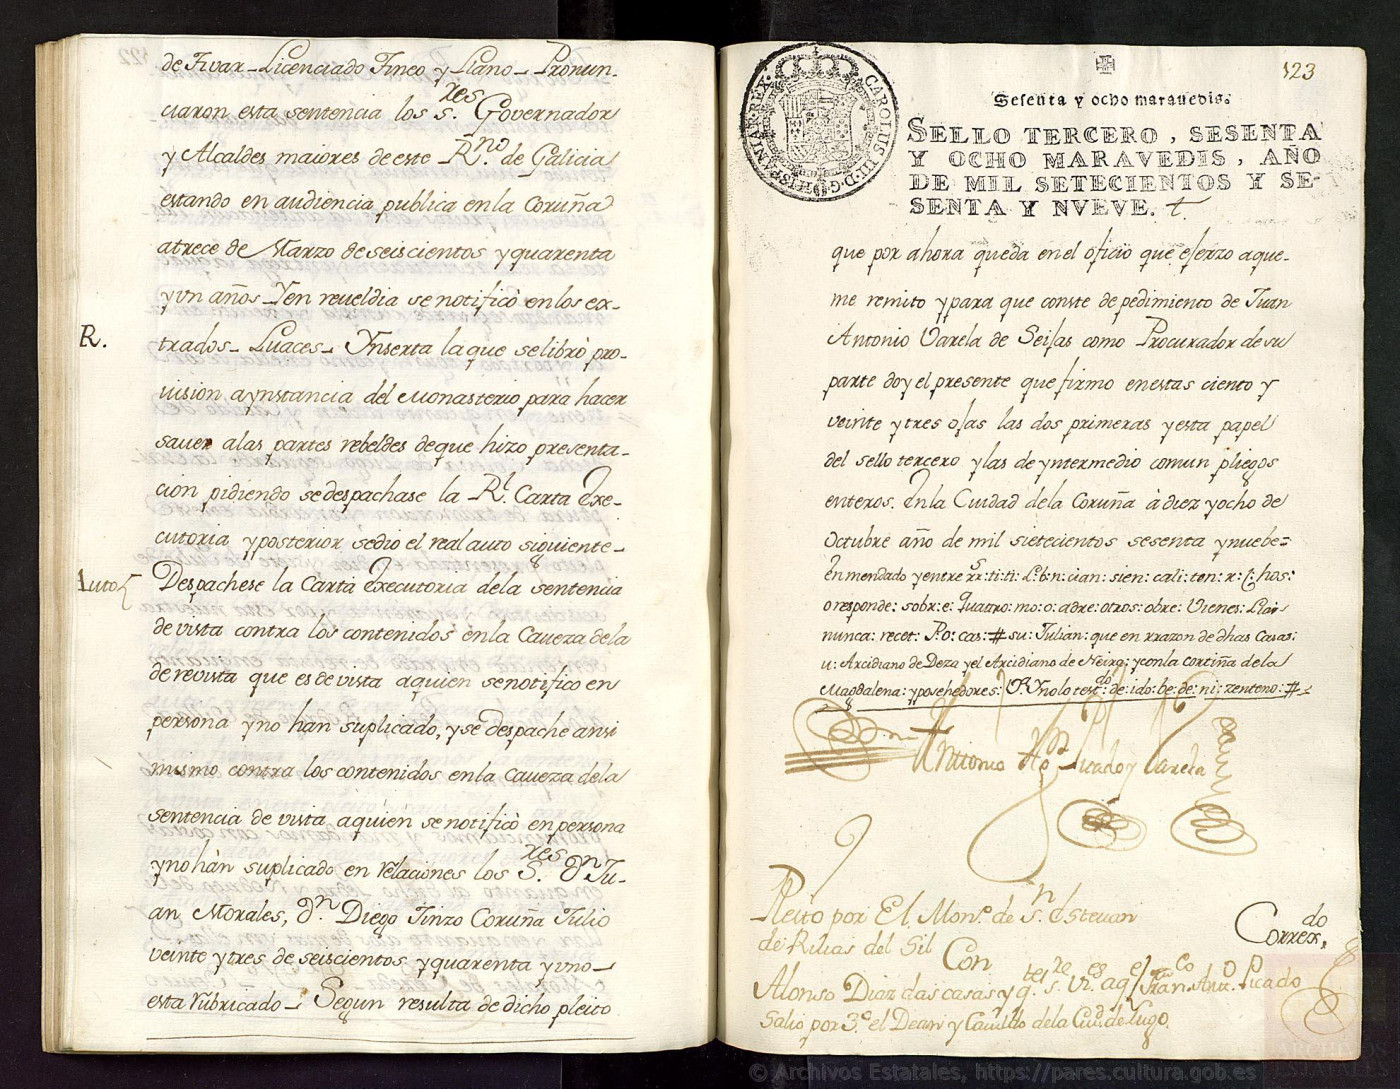 de Tivar - Licenciado Tineo y Llano - Pronun-
ciaron esta sentencia los s.res Governador
y Alcaldes maiores de este R.no de Galicia
estando en audiencia publica en la Coruña
atrece de Marzo de seiscientos y quarenta
yvn años - Yen reveldia se notificò en los ex-
R. trados - Luaces - Ynserta la que se librò pro-
uision a ynstancia del Monasterio para hacer
sauer alas partes rebeldes de que hizo presenta-
cion pidiendo se despachase la R.l Carta Exe-
cutoria y posterior se dio el real auto siguiente -
Auto Despachese la Carta Executoria de la sentencia
de vista contra los contenidos en la Caueza de la
de revista que es de vista aquien se notifico en
persona yno han suplicado, y se despache ansi
mismo contra los contenidos en la Caueza de la
sentencia de vista aquien se notificò en persona
yno hàn suplicado en Relaciones los S.res Dn Ju-
an Morales, Dn. Diego Tinzo Coruña Julio
veinte y tres de seiscientos y quarenta y vno -
esta rubricado - Segun resulta de dicho pleito
123
CAROLUS III D G HISPANIAR REX
Sesenta y ocho maravedis.
SELLO TERCERO, SESENTA
Y OCHO MARAVEDIS, AÑO
DE MIL SETECIENTOS Y SE-
SENTA Y NVEVE. t.
que por ahora queda en el oficio que ejerzo aque-
me remito y para que conste de pedimiento de Juan
Antonio Varela de Seijas como Procurador de su
parte doy el presente que firmo en estas ciento y
veinte y tres ojas las dos primeras y esta papel
del sello tercero y las de yntermedio comun pliegos
enteros. En la Ciudad de la Coruña à diez y ocho de
Octubre año de mil sietecientos sesenta y nuebe=
Enmendado y entre rr.s: ti: ti: l: b: n: cian: sien: cali: ton: r: f: hos:
o responde: sobr: e: quatro: mo: o: adre: otros: obre: Vienes:
nunca: recet: Po: cas: # su: Julian: que en rrazon de dhas Casas:
u: Arcidiano de Deza y el Arcidiano de Neira: y con la cortiña de la
Magdalena: y posehedores: de: ido: be: de: ni: zenteno: #
Antonio Picado y Varela
Pleito por El Mon.o de S.n Estevan
de Rilias del Sil
Con
Correx.do
Alonso Diaz das casas y
Salio por 3.o el Dean y Cauildo de la Ciud. de Lugo.
© Archivos Estatales, https://pares.cultura.gob.es
ARCHIVOS
ESTATALES